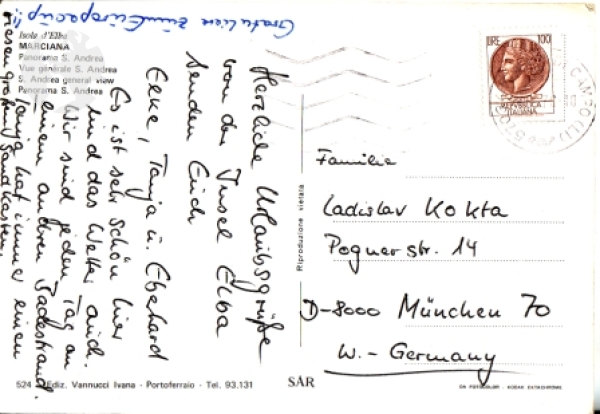 Gratuliere zum Europacup!!
Isola d'Elba
MARCIANA
Panorama S. Andrea
Vue générale S. Andrea
S. Andrea general view
Panorama S. Andrea
Herzliche Urlaubsgrüße
von der Insel Elba
senden Euch
Elke, Tanja u. Eberhard
Es ist sehr schön hier
und das Wetter auch.
Wir sind jeden Tag an
einem anderen Badestrand.
Tanja hat immer einen
riesengroßen Sandkasten.
LIRE 100
REPUBBLICA
ITALIANA
CAMPO
Familie
Ladislav Kokta
Pognerstr. 14
D-8000 München 70
W.-Germany
Riproduzione vietata
524 Ediz. Vannucci Ivana - Portoferraio - Tel. 93.131
SAR
GM FOTOCOLOR - KODAK EKTACHROME